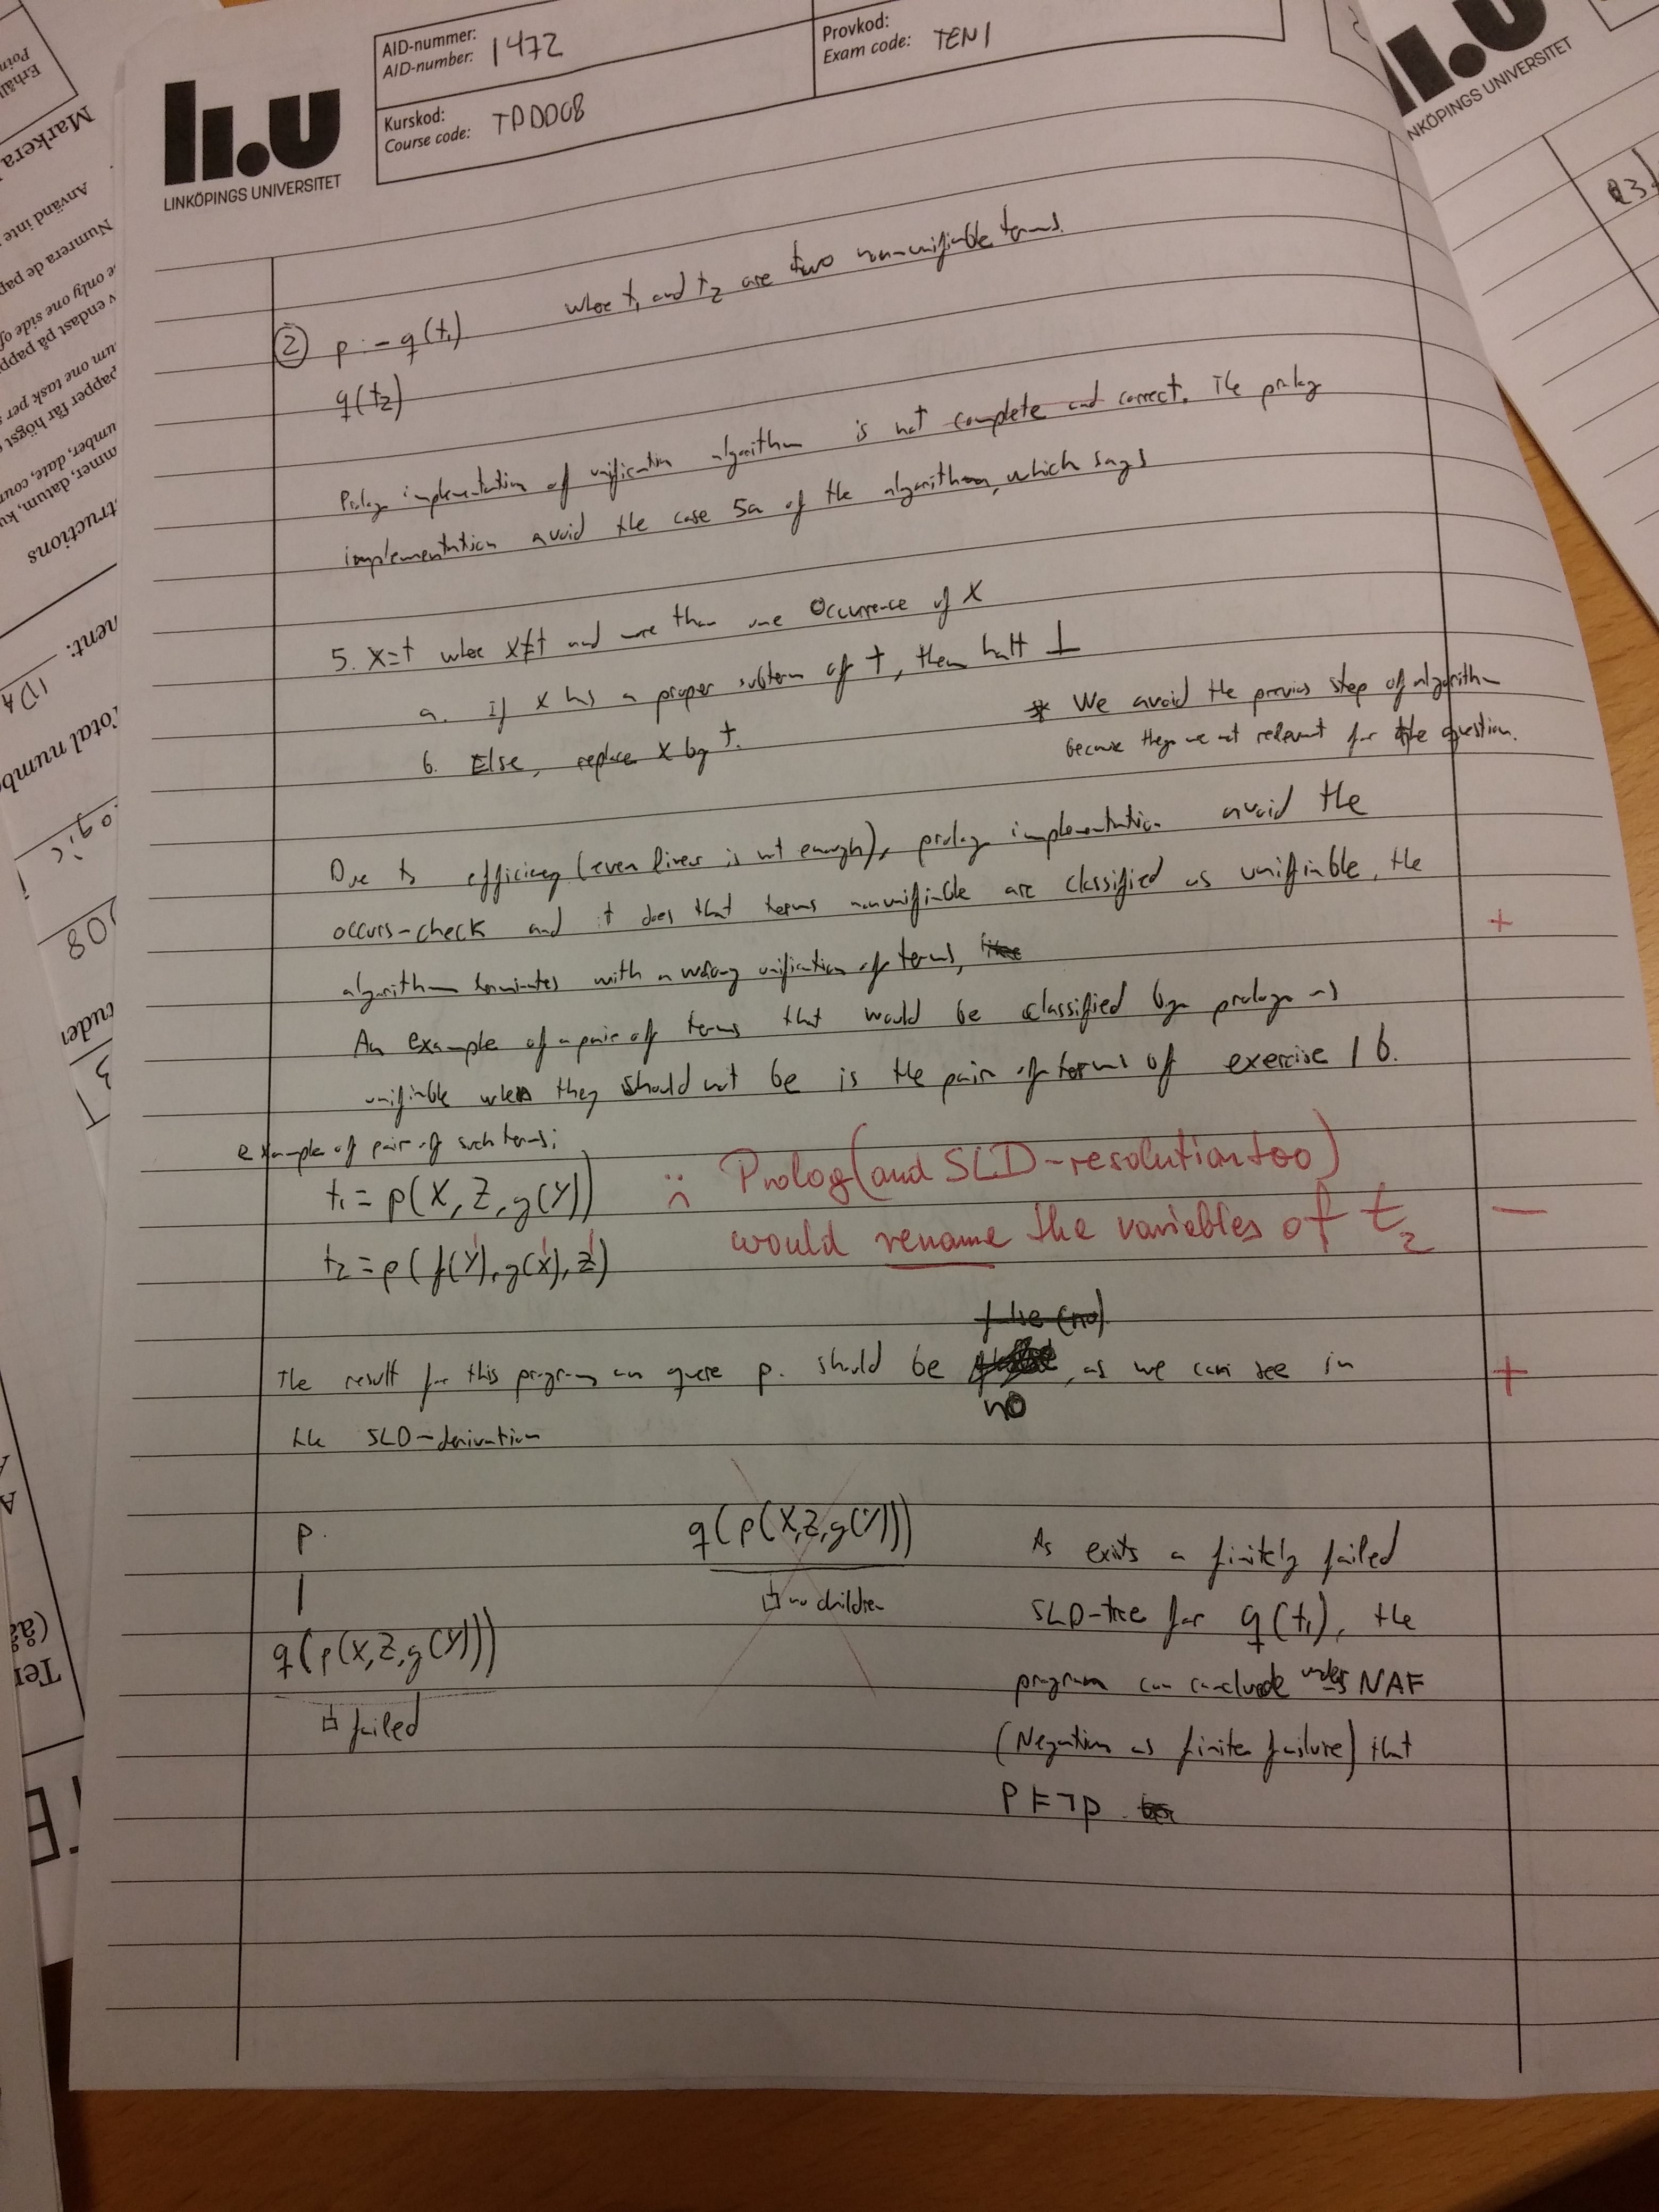 AID-nummer:
AID-number: 1472
Provkod:
Exam code: TEN1
Kurskod:
Course code: TDDD08
li.u
LINKÖPINGS UNIVERSITET
LINKÖPINGS UNIVERSITET
② p :- q(t₁) where t₁ and t₂ are two non-unifiable terms.
q(t₂)
Prolog implementation of unification algorithm is not complete and correct. The prolog
implementation avoid the case 5a of the algorithm, which says
5. X=t where X≠t and more than one occurrence of X
a. if X is a proper subterm of t, then halt ⊥
b. Else, replace X by t.
* We avoid the previous step of algorithm
because they are not relevant for the question.
Due to efficiency (even linear is not enough), prolog implementation avoid the
occurs-check and it does that terms nonunifiable are classified as unifiable, the
algorithm terminates with a wrong unification of terms,
An example of a pair of terms that would be classified by prolog as
unifiable when they should not be is the pair of terms of exercise 1b.
example of pair of such terms:
t₁ = p(X, Z, g(Y))
t₂ = p(f(Y'), g(X'), Z')
Prolog (and SLD-resolution too)
would rename the variables of t₂
The result for this program on query p. should be no, as we can see in
the SLD-derivation
p.
q(p(X,Z,g(Y)))
failed
q(p(X,Z,g(Y)))
no children
As exits a finitely failed
SLD-tree for q(t₁), the
program can conclude under NAF
(Negation as finite failure) that
P ⊨ ¬p